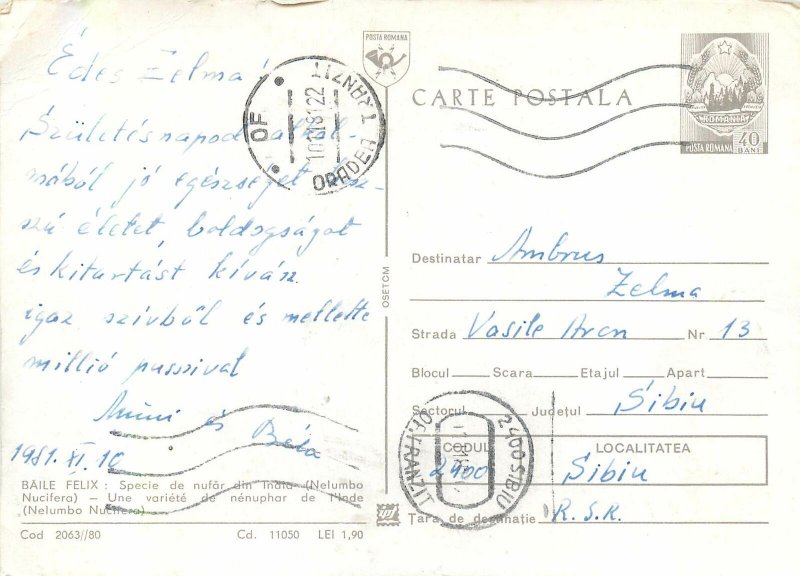 Édes Zelma!
Születésnapod alkal-
mából jó egészséget hosz-
szú életet, boldogságot
és kitartást kíván
igaz szívből és mellette
millió puszival
és Béla
1981. XI. 10
BĂILE FELIX : Specie de nufăr din India (Nelumbo
Nucifera) — Une variété de nénuphar de l'Inde
(Nelumbo Nucifera)
Cod 2063//80 Cd. 11050 LEI 1,90
OSETCM
POSTA ROMANA
OF. TRANZIT
ORADEA 1
CARTE POSTALA
ROMANIA
POSTA ROMANA
40
BANI
Destinatar Ambrus
Zelma
Strada Vasile Aron Nr 13
Blocul Scara Etajul Apart
Sectorul Județul Sibiu
CODUL LOCALITATEA
2400 Sibiu
Țara de destinație R.S.R.
2400 SIBIU
OF. TRANZIT